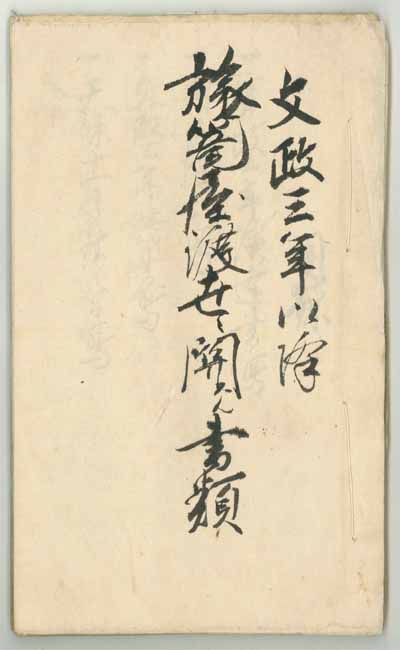 文政三年以降
旅籠屋渡世ニ関スル書類